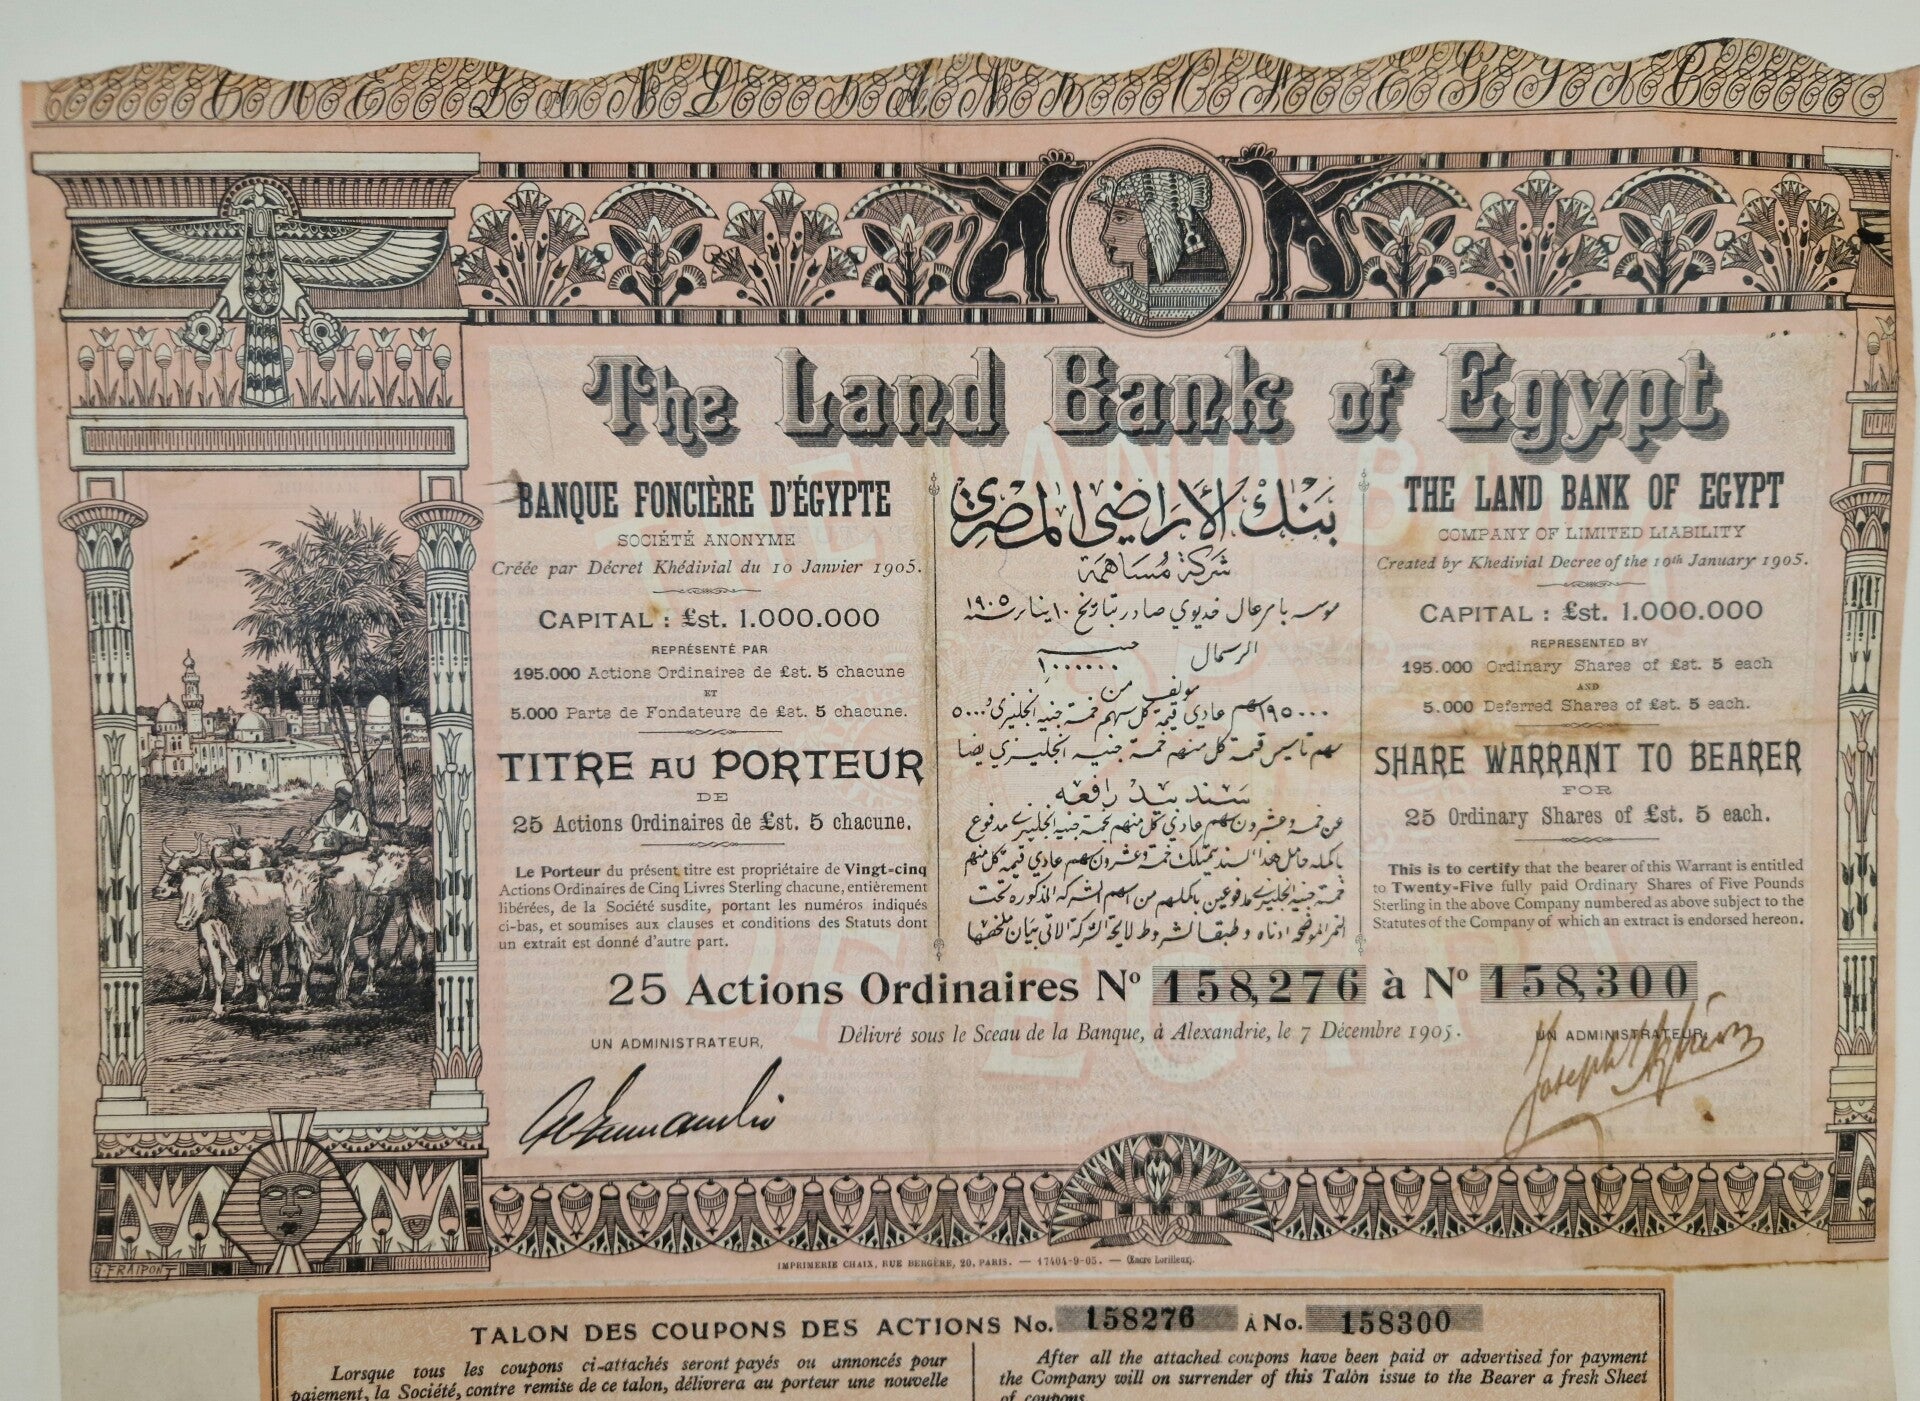 THE LAND BANK OF EGYPT
The Land Bank of Egypt
BANQUE FONCIÈRE D'ÉGYPTE
SOCIÉTÉ ANONYME
Créée par Décret Khédivial du 10 Janvier 1905.
CAPITAL : £st. 1.000.000
REPRÉSENTÉ PAR
195.000 Actions Ordinaires de £st. 5 chacune
ET
5.000 Parts de Fondateurs de £st. 5 chacune.
TITRE AU PORTEUR
DE
25 Actions Ordinaires de £st. 5 chacune.
Le Porteur du présent titre est propriétaire de Vingt-cinq
Actions Ordinaires de Cinq Livres Sterling chacune, entièrement
libérées, de la Société susdite, portant les numéros indiqués
ci-bas, et soumises aux clauses et conditions des Statuts dont
un extrait est donné d'autre part.
بنك الأراضي المصري
شركة مساهمة
موسسه بامر عال خديوي صادر بتاريخ ١٠ يناير سنة ١٩٠٥
الرسمال
جنيه
١٠٠٠٠٠٠
مولف من
١٩٥٠٠٠ سهم عادي قيمة كل سهم خمسة جنيه انجليزي و ٥٠٠٠
سهم تاسيس قيمة كل منهم خمسة جنيه انجليزي ايضا
سند بيد رافعه
عن خمسة وعشرون سهم عادي كل منهم خمسة جنيه انجليزي مدفوع
بالكامل حامل هذا السند يمتلك خمسة وعشرون سهم عادي قيمة كل منهم
خمسة جنيه انجليزي مدفوعين باكملهم من اسهم الشركة المذكورة تحت
النمر الموضحه ادناه وطبقا لشروط لايحة الشركة الاتي بيان ملخصها
THE LAND BANK OF EGYPT
COMPANY OF LIMITED LIABILITY
Created by Khedivial Decree of the 10th January 1905.
CAPITAL : £st. 1.000.000
REPRESENTED BY
195.000 Ordinary Shares of £st. 5 each
AND
5.000 Deferred Shares of £st. 5 each.
SHARE WARRANT TO BEARER
FOR
25 Ordinary Shares of £st. 5 each.
This is to certify that the bearer of this Warrant is entitled
to Twenty-Five fully paid Ordinary Shares of Five Pounds
Sterling in the above Company numbered as above subject to the
Statutes of the Company of which an extract is endorsed hereon.
25 Actions Ordinaires No 158,276 à No 158,300
Délivré sous le Sceau de la Banque, à Alexandrie, le 7 Décembre 1905.
UN ADMINISTRATEUR,
UN ADMINISTRATEUR,
G. FRAIPONT
IMPRIMERIE CHAIX, RUE BERGÈRE, 20, PARIS. — 17404-9-05. — (Encre Lorilleux).
TALON DES COUPONS DES ACTIONS No. 158276 À No. 158300
Lorsque tous les coupons ci-attachés seront payés ou annoncés pour
paiement, la Société, contre remise de ce talon, délivrera au porteur une nouvelle
After all the attached coupons have been paid or advertised for payment
the Company will on surrender of this Talon issue to the Bearer a fresh Sheet
of coupons.